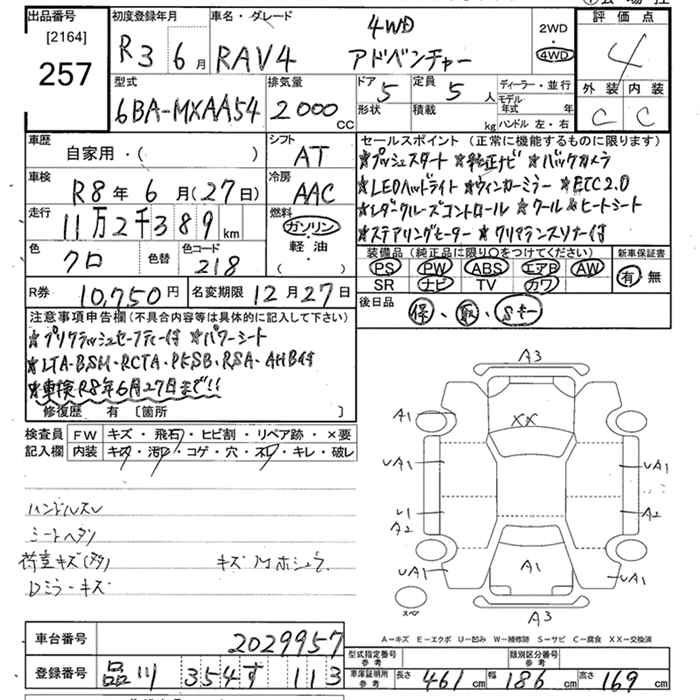 出品番号
[2164]
257
初度登録年月
R3 6月
車名・グレード
RAV4
4WD
アドベンチャー
2WD
4WD
評価点
4
外装 内装
C C
型式
6BA-MXAA54
排気量
2000 CC
ドア 5
形状
定員 5 人
積載 kg
ディーラー・並行
モデル年式 年
ハンドル 左・右
車歴
自家用・( )
シフト
AT
車検
R8年6月(27日)
冷房
AAC
走行
11万2千389km
燃料
ガソリン
軽油・
( )
色
クロ
色替
色コード
218
R券 10,750円
名変期限 12月27日
セールスポイント(正常に機能するものに限ります)
☆プッシュスタート ☆純正ナビ ☆バックカメラ
☆LEDヘッドライト ☆ウィンカーミラー ☆ETC2.0
☆レダークルーズコントロール ☆クール&ヒートシート
☆ステアリングヒーター ☆クリアランスソナー付
装備品(純正品に限り○をつけてください)
PS PW ABS エアB AW
SR ナビ TV カワ
新車保証書
有・無
後日品
保、取、Sキー
注意事項申告欄(不具合内容等は具体的に記入して下さい)
☆プリクラッシュセーフティー付 ☆パワーシート
☆LTA・BSM・RCTA・PKSB・RSA・AHB付
☆車検R8年6月27日まで!!
修復歴 有〔箇所 〕
検査員記入欄
FW キズ・飛石・ヒビ割・リペア跡・×要
内装 キズ・汚レ・コゲ・穴・スレ・キレ・破レ
ハンドルスレ
シートヘタリ
荷室キズ(多)
Dミラーキズ
キズ
A3
A1
XX
UA1
UA1
A2
A2
UA1
A1
UA1
スペア
A3
A―キズ E―エクボ U―凹み W―補修跡 S―サビ C―腐食 XX―交換済
車台番号
2029957
登録番号
品川 354 す 113
型式指定番号 参考
類別区分番号 参考
車庫証明用 参考
長さ 461 cm 幅 186 cm 高さ 169 cm